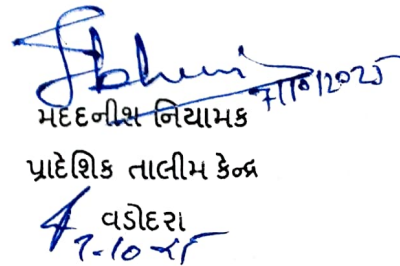 7/10/2025
મદદનીશ નિયામક
પ્રાદેશિક તાલીમ કેન્દ્ર
વડોદરા
7.10.25